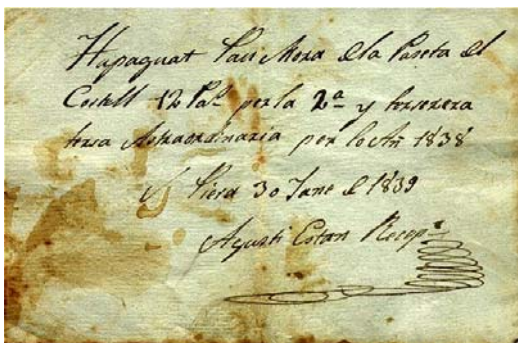 Hapaguat Pau Mora dla Paseta dl
Castell 12 Pals per la 2ª y terserera
tersa Astraordinaria per lo Añ 1838
Piera 30 Jane d 1839
Agusti Estan Recepr